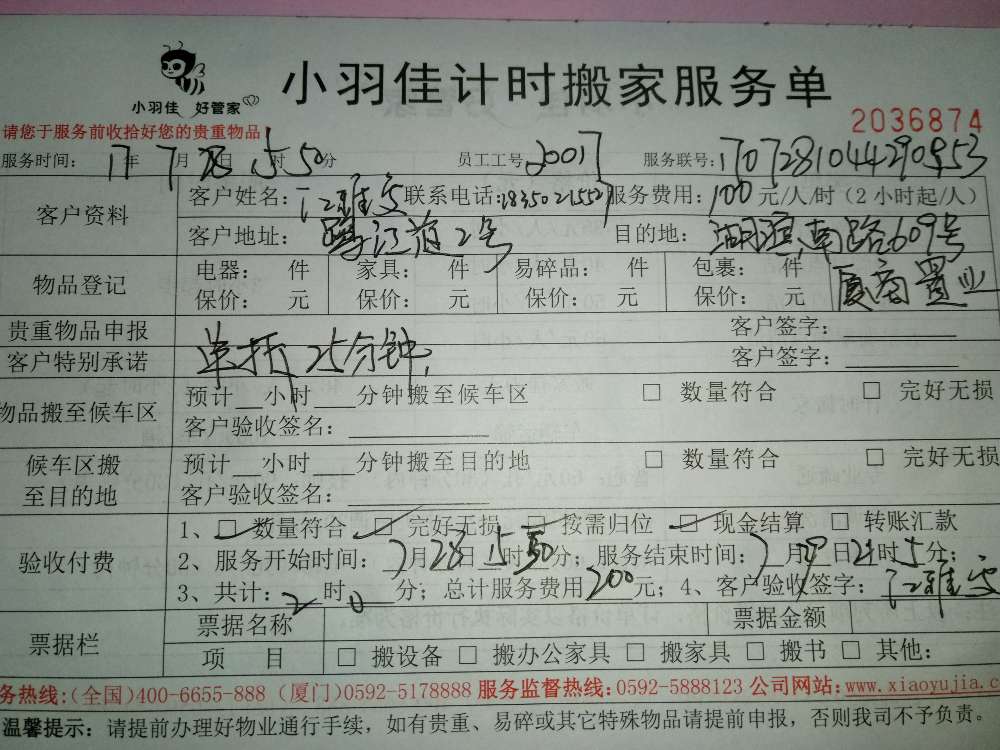 小羽佳 好管家
小羽佳计时搬家服务单
请您于服务前收拾好您的贵重物品！
2036874
服务时间：17年7月28日15时50分 员工工号：20017 服务联号：1707281044290953
客户资料 客户姓名：江雅 联系电话：18350215527 服务费用：100元/人/时（2小时起/人）
客户地址：鹭江道2号 目的地：湖滨南路609号
物品登记 电器： 件 家具： 件 易碎品： 件 包裹： 件 夏商置业
保价： 元 保价： 元 保价： 元 保价： 元
贵重物品申报 客户签字：
客户特别承诺 单拆25分钟 客户签字：
物品搬至候车区 预计 小时 分钟搬至候车区 □ 数量符合 □ 完好无损
客户验收签名：
候车区搬至目的地 预计 小时 分钟搬至目的地 □ 数量符合 □ 完好无损
客户验收签名：
验收付费 1、☑ 数量符合 ☑ 完好无损 ☑ 按需归位 ☑ 现金结算 □ 转账汇款
2、服务开始时间：7月28日15时50分；服务结束时间：7月 日 时5分；
3、共计：2时0分；总计服务费用200元；4、客户验收签字：江雅
票据栏 票据名称 票据金额
项 目 □ 搬设备 □ 搬办公家具 □ 搬家具 □ 搬书 □ 其他：
务热线:(全国)400-6655-888 (厦门)0592-5178888 服务监督热线:0592-5888123 公司网站:www.xiaoyujia.c
温馨提示：请提前办理好物业通行手续，如有贵重、易碎或其它特殊物品请提前申报，否则我司不予负责。